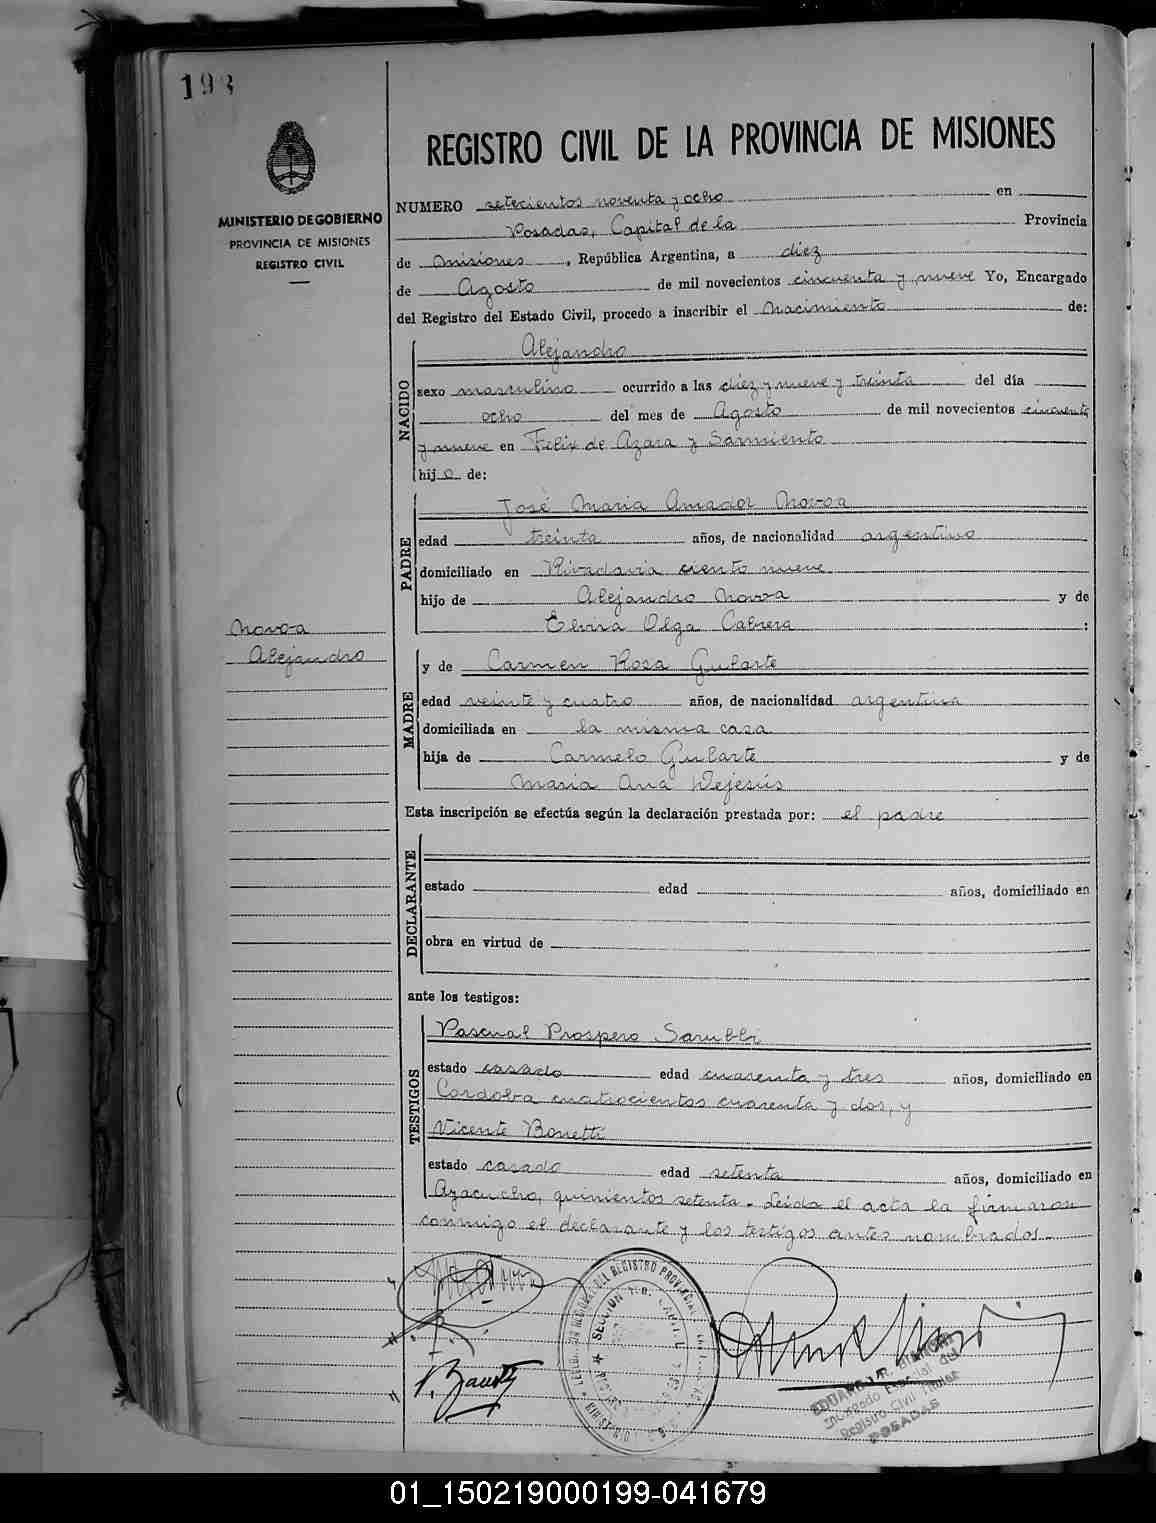 193
MINISTERIO DE GOBIERNO
PROVINCIA DE MISIONES
REGISTRO CIVIL
REGISTRO CIVIL DE LA PROVINCIA DE MISIONES
NUMERO setecientos noventa y ocho en
Posadas, Capital de la Provincia
de Misiones, República Argentina, a diez
de Agosto de mil novecientos cincuenta y nueve Yo, Encargado
del Registro del Estado Civil, procedo a inscribir el Nacimiento de:
NACIDO
Alejandro
sexo masculino ocurrido a las diez y nueve y treinta del día
ocho del mes de Agosto de mil novecientos cincuenta
y nueve en Felix de Azara y Sarmiento
hijo de:
PADRE
José Maria Amador Novoa
edad treinta años, de nacionalidad argentino
domiciliado en Rivadavia ciento nueve
hijo de Alejandro Novoa y de
Elvira Olga Cabrera :
Novoa
Alejandro
MADRE
y de Carmen Rosa Gularte
edad veinte y cuatro años, de nacionalidad argentina
domiciliada en la misma casa
hija de Carmelo Gularte y de
Maria Ana Dejesús
Esta inscripción se efectúa según la declaración prestada por: el padre
DECLARANTE
estado edad años, domiciliado en
obra en virtud de
ante los testigos:
TESTIGOS
Pascual Prospero Sarubbi
estado casado edad cuarenta y tres años, domiciliado en
Cordoba cuatrocientos cuarenta y dos, y
Vicente Bonetti
estado casado edad setenta años, domiciliado en
Ayacucho, quinientos setenta. Leída el acta la firmaron
conmigo el declarante y los testigos antes nombrados.
EDUARDO R.
Encargado
Registro Civil
POSADAS
01_150219000199-041679